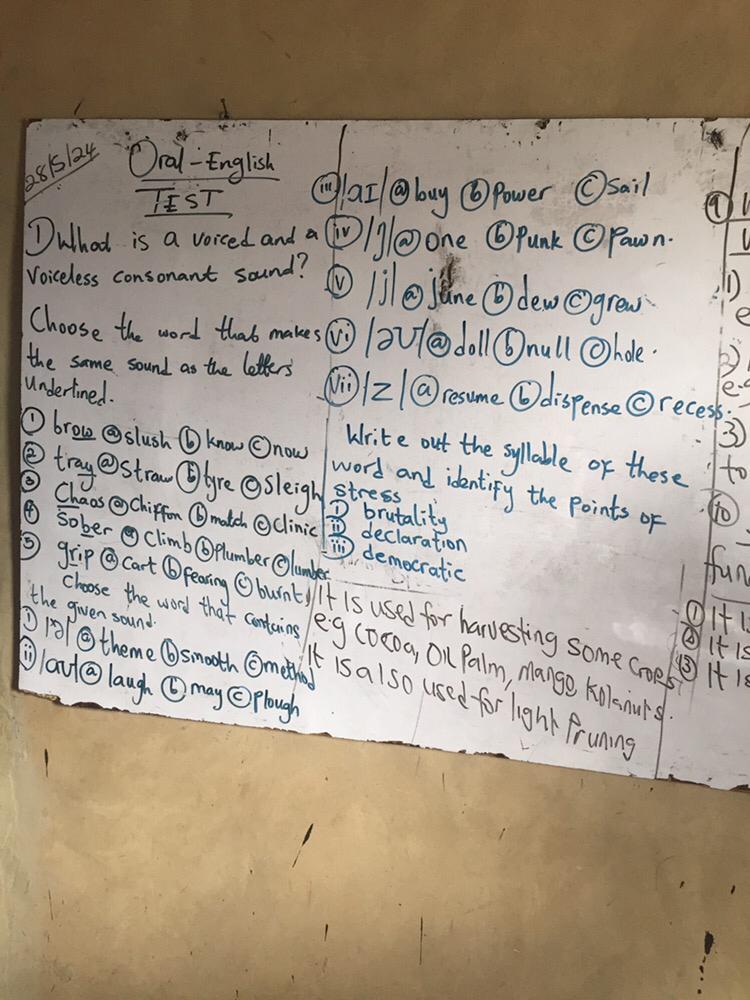 28/5/24
Oral-English
TEST
1) What is a voiced and a
voiceless consonant sound?
Choose the word that makes
the same sound as the letters
underlined.
① brow ⓐ slush ⓑ know ⓒ now
② tray ⓐ straw ⓑ tyre ⓒ sleigh
③ Chaos ⓐ Chiffon ⓑ match ⓒ clinic
④ Sober ⓐ climb ⓑ plumber ⓒ lumber
⑤ grip ⓐ cart ⓑ fearing ⓒ burnt
Choose the word that contains
the given sound.
ⓐ theme ⓑ smooth ⓒ method
ii /aʊ/ ⓐ laugh ⓑ may ⓒ plough
iii /aI/ ⓐ buy ⓑ power ⓒ sail
iv /j/ ⓐ one ⓑ punk ⓒ pawn.
v /j/ ⓐ june ⓑ dew ⓒ grew
vi /əʊ/ ⓐ doll ⓑ null ⓒ hole.
vii /z/ ⓐ resume ⓑ dispense ⓒ recess.
Write out the syllable of these
word and identify the points of
stress
i brutality
ii declaration
iii democratic
It is used for harvesting some crops
e.g cocoa, Oil palm, mango kolanuts.
It is also used for light pruning
9
1)
2)
e.g
3)
to
10
fun
① It
② It is
③ It is